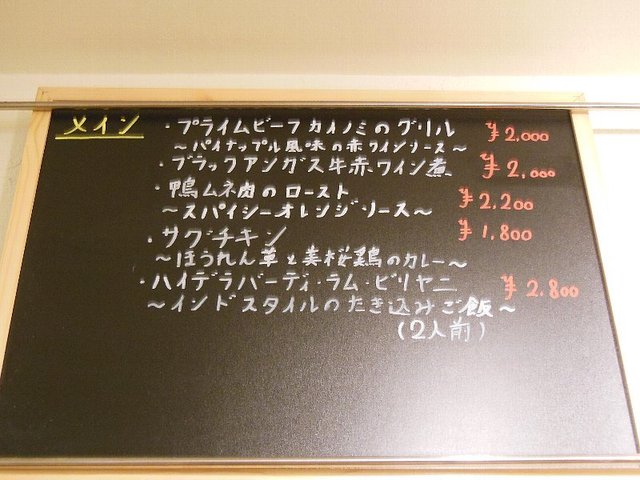 メイン
・プライムビーフカイノミのグリル ¥2,000
～パイナップル風味の赤ワインソース～
・ブラックアンガス牛赤ワイン煮 ¥2,000
・鴨ムネ肉のロースト ¥2,200
～スパイシーオレンジソース～
・サグチキン ¥1,800
～ほうれん草と美桜鶏のカレー～
・ハイデラバーディ・ラム・ビリヤニ ¥2,800
～インドスタイルのたき込みご飯～
(2人前)